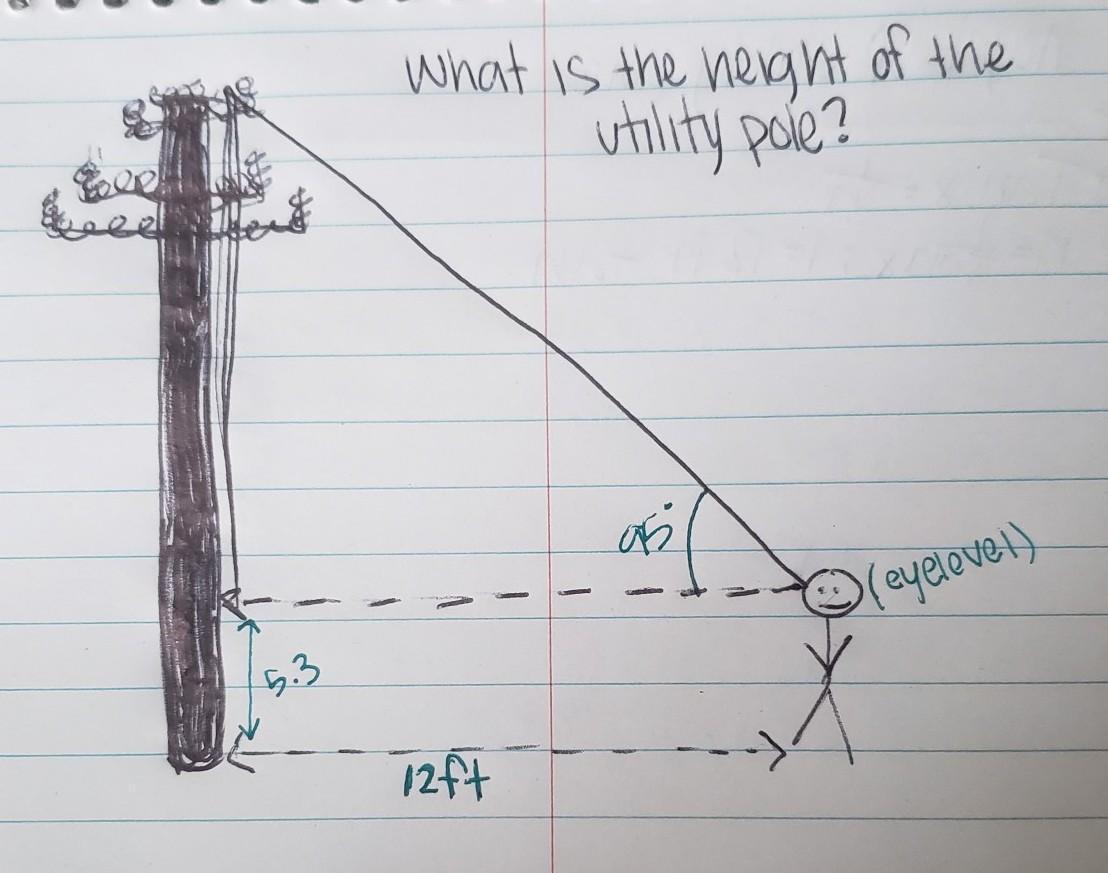 What is the height of the
utility pole?
45°
(eyelevel)
5.3
12ft